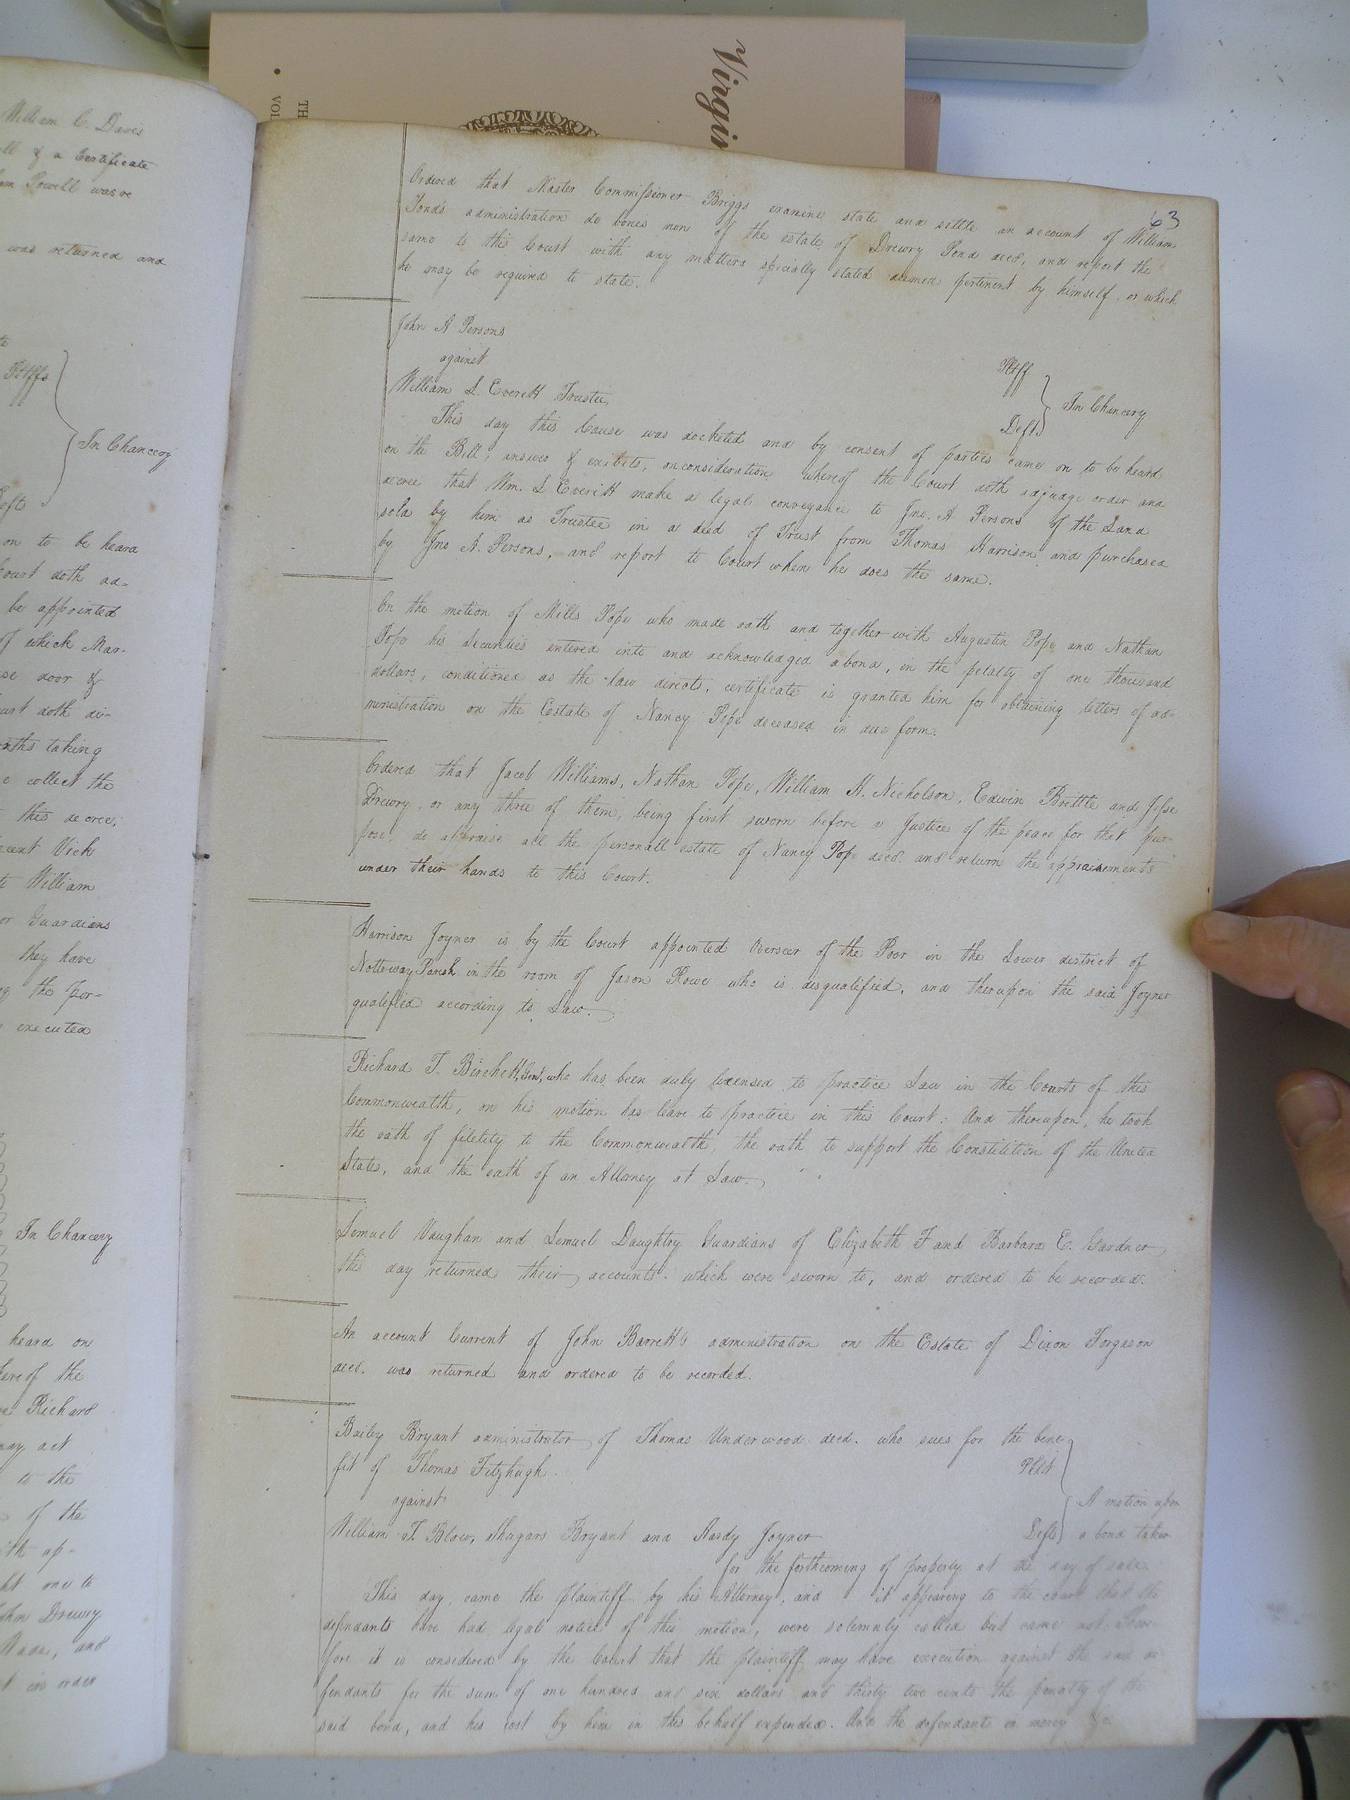 Virgin
TH
VOL
William C. Davis
ll & a Certificate
am Powell was re
was returned and
Pltffs
In Chancery
Defts
on to be heard
Court doth ad=
be appointed
of which Mar-
se door of
urt doth di-
onths taking
e collect the
this decree,
cent Vick
to William
or Guardians
they have
ng the pur-
executed
In Chancery
heard on
hereof the
Richard
may act
to the
of the
ith ap-
ht one to
John Drewry
Wade, and
t in order
63
Ordered that Master Commissioner Briggs examine state and settle an account of William
Pond's administration de bones non of the estate of Drewry Pond decd, and report the
same to this Court with any matters specially stated deemed pertinent by himself or which
he may be required to state.
John A Persons Pltff
against
William L. Everett Trustee, Deft
In Chancery
This day this Cause was docketed and by consent of parties came on to be heard
on the Bill, answer & exibits, onconsideration whereof the Court doth adjudge order and
decree that Wm. L Everitt make a legal conveyance to Jno. A Persons of the Land
sold by him as Trustee in a deed of Trust from Thomas Harrison and purchased
by Jno A. Persons, and report to Court when he does the same.
On the motion of Mills Pope who made oath and together with Augustin Pope and Nathan
Pope his Securities entered into and acknowledged a bond, in the pelalty of one thousand
dollars, conditioned as the law directs, certificate is granted him for obtaining letters of ad=
ministration on the Estate of Nancy Pope deceased in due form.
Ordered that Jacob Williams, Nathan Pope, William H. Nicholson, Edwin Brittle and Jesse
Drewry, or any three of them, being first sworn before a Justice of the peace for that pur-
pose, do appraise all the personall estate of Nancy Pope decd. and return the appraisements
under their hands to this Court.
Harrison Joyner is by the Court appointed Overseer of the Poor in the Lower district of
Nottoway Parish in the room of Jason Rowe who is disqualified, and thereupon the said Joyner
qualified according to Law.
Richard T. Birchett, Gent, who has been duly licensed to practice Law in the Courts of this
Commonwealth, on his motion has leave to practice in this Court: And thereupon, he took
the oath of filetity to the Commonwealth, the oath to support the Constitition of the United
States, and the oath of an Attorney at Law.
Lemuel Vaughan and Lemuel Daughtry Guardians of Elizabeth F and Barbara E. Gardner
this day returned their accounts which were sworn to, and ordered to be recorded.
An account Current of John Barrett's administration on the Estate of Dixon Forgason
decd. was returned and ordered to be recorded.
Bailey Bryant administrator of Thomas Underwood decd. who sues for the bene
fit of Thomas Fitzhugh Pltff
against
A motion upon
William T. Blow, Shugars Bryant and Hardy Joyner Defts a bond taken
for the forthcoming of property at the day of sale
This day came the plaintiff by his Attorney, and it appearing to the court that the
defendants have had legal notice of this motion, were solemnly called but came not There-
fore it is considered by the Court that the plaintiff may have execution against the said de
fendants for the sum of one hundred and six dollars and thirty two cents the penalty of the
said bond, and his cost by him in this behalf expended. And the defendants in mercy &c.